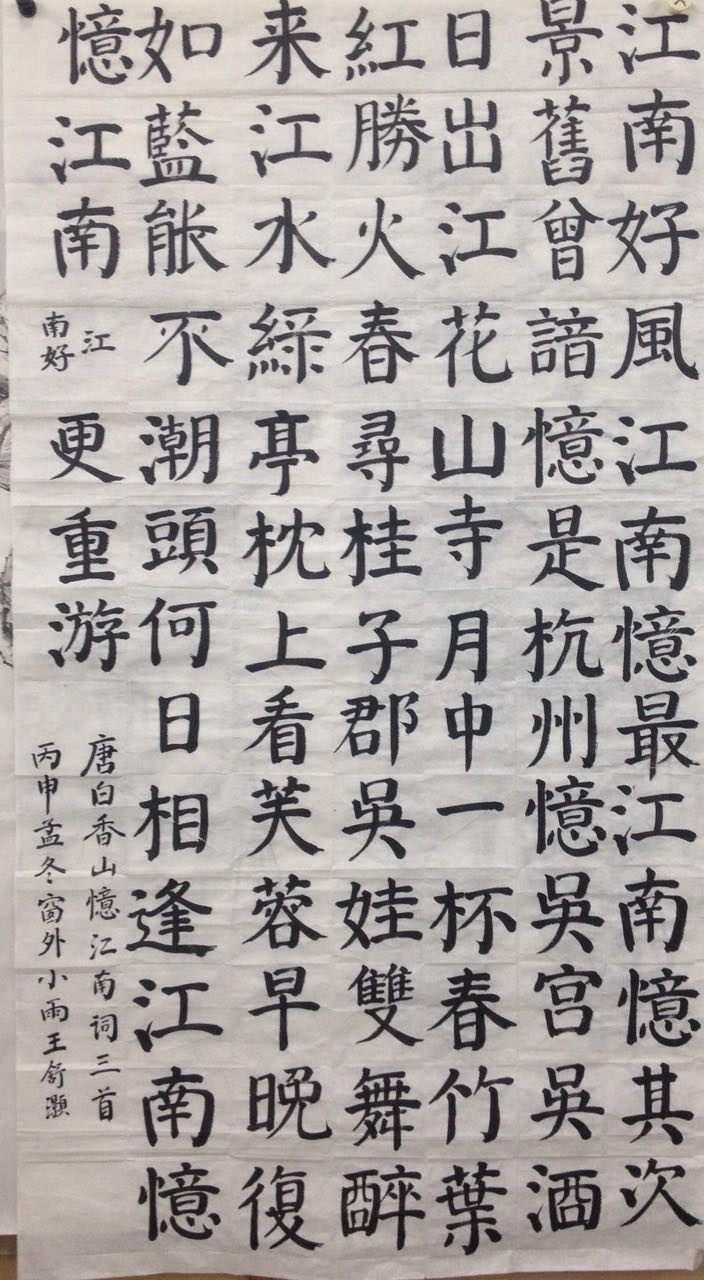 江南好風江南憶最江南憶其次
景舊曾諳憶是杭州憶吳宫吳酒
日出江花山寺月中一杯春竹葉
紅勝火春尋桂子郡吳娃雙舞醉
来江水綠亭枕上看芙蓉早晚復
如藍能不潮頭何日相逢江南憶
憶江南江南好更重游
唐白香山憶江南詞三首
丙申孟冬窗外小雨王舒灝